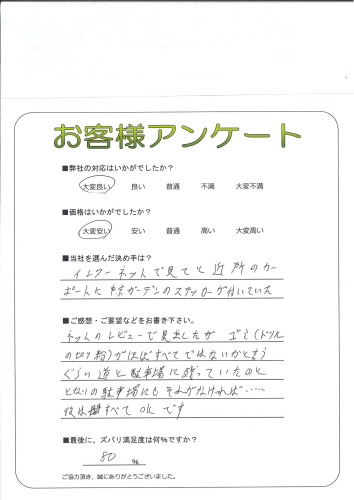 お客様アンケート
■弊社の対応はいかがでしたか？
大変良い 良い 普通 不満 大変不満
■価格はいかがでしたか？
大変安い 安い 普通 高い 大変高い
■当社を選んだ決め手は？
インターネットで見てと近所のカー
ポートに ガーデンのステッカーが付いていた
■ご感想・ご要望などをお書き下さい。
ネットのレビューで見ましたが ゴミ(ドリル
の切り粉)がほぼすべてではないかと思う
ぐらい道と駐車場に残っていたのと
となりの駐車場にもそれがなければ……
後は すべてOKです
■最後に、ズバリ満足度は何%ですか？
80 %
ご協力頂き、誠にありがとうございました。